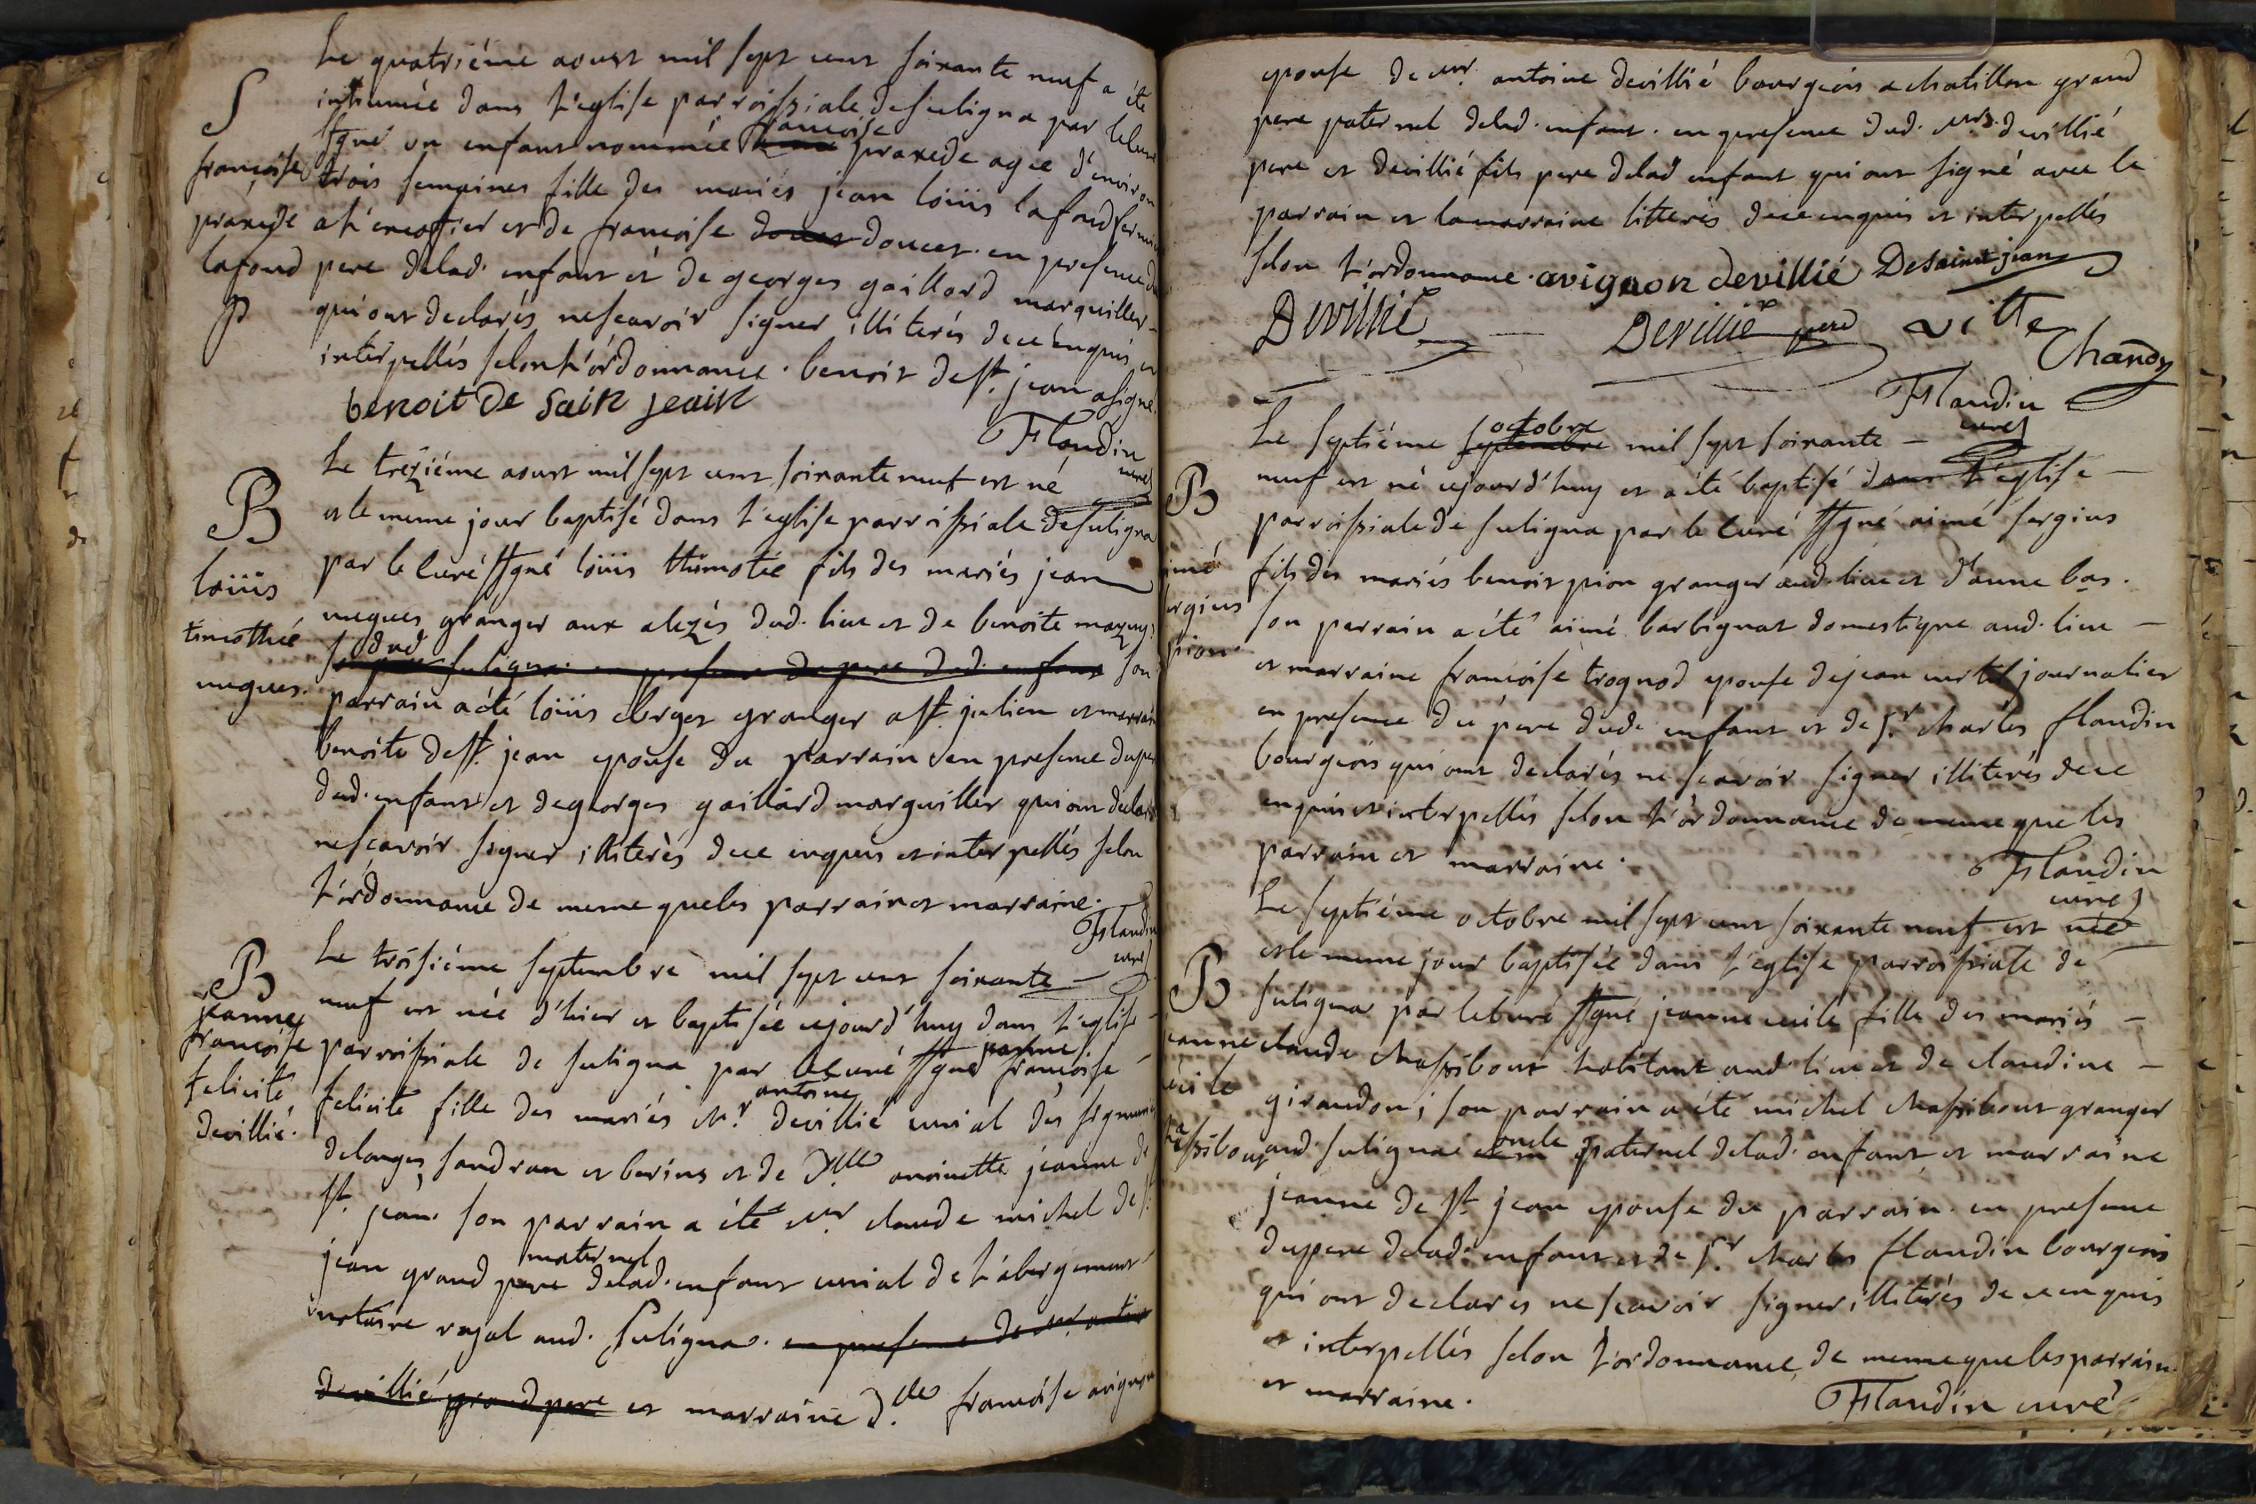 Le quatriéme aoust mil sept cent soixante neuf a été
S
inhumée dans l'eglise parroissiale de suligna par le curé
françoise
ssgné un enfant nommée praxede agée d'environ
françoise
trois semaines fille des mariés jean loüis lafond fermier
praxede
a l'encoffier et de françoise doucet doucet. en presence du
lafond
pere delad. enfant et de georges gaillard marquiller
qui ont declarés ne scavoir signer illiterés de ce enquis et
interpellés selon l'órdonnance. benoit de st. jean a signé.
benoit De sain jeain
Flandin
curé
Le treziéme aoust mil sept cent soixante neuf est né
B
et le meme jour baptisé dans l'eglise parroissiale de suligna
par le curé ssgné loüis thimotée fils des mariés jean
loüis
nugues granger aux alezés dud. lieu et de benoite mazuy
timothée
dud suligna. en presence du pere dud. enfant son
nugues.
parrain a été loüis clerget granger a st. julien et marraine
benoite de st. jean epouse du parrain en presence du pere
dud. enfant et de georges gaillard marguiller qui ont declarés
ne scavoir signer illiterés de ce enquis et interpellés selon
l'órdonnance de meme que les parrain et marraine.
Flandin
curé
Le troisiéme septembre mil sept cent soixante
B
neuf est née d'hier et baptisée cejourd'huy dans l'eglise
jeanne
jeanne
françoise
parroissiale de suligna par le curé ssgné françoise
felicité
antoine
felicité fille des mariés Mr. devillié curial des
devillié.
delonges, sandran et berins et de Dlle antoinette jeanne de
st. jean. son parrain a été Mr claude michel de st.
maternel
jean grand pere delad. enfant curial de l'abergement
notaire royal aud. suligna. en presence de Mr. antoine
devillié grand pere et marraine d.lle françoise avignon
epouse de Mr. antoine devillié bourgeois a chatillon grand
pere paternel delad. enfant. en presence dud. Mrs. devillié
pere et devillié fils pere delad enfant qui ont signé avec le
parrain et la marraine litterés de ce enquis et interpellés
selon l'ordonnance. avignon devillié Desaint jean
Devillié Devillié pere vitte
Chandy
Flandin
curé
octobre
Le septiéme septembre mil sept soixante
B
neuf est né cejourd'huy et a été baptisé dans l'église
parroissiale de suligna par le curé ssgné aimé sergius
fils des mariés benoit pion granger aud. lieu et d'anne bas.
son parrain a été aimé barbignat domestique aud. lieu
pion
et marraine françoise trognod epouse de jean journalier
en presence du pere dud. enfant et de Sr. charles flandin
bourgeois qui ont declarés ne scavoir signer illiterés de ce
enquis et interpellés selon l'órdonnance de meme que les
parrain et marraine.
Flandin
curé
Le septiéme octobre mil sept cent soixante neuf est née
et le meme jour baptisée dans l'eglise parroissiale de
B
suligna par le curé ssgné jeanne cecile fille des mariés
claude chassibout habitant aud. lieu et de claudine
girandon; son parrain a été michel chassibout granger
oncle
aud. suligna paternel delad. enfant et marraine
jeanne de st. jean epouse du parrain. en presence
du pere delad. enfant et de Sr. charles flandin bourgeois
qui ont declarés ne scavoir signer illiterés de ce enquis
et interpellés selon l'ordonnance, de meme que les parrain
et marraine.
Flandin curé